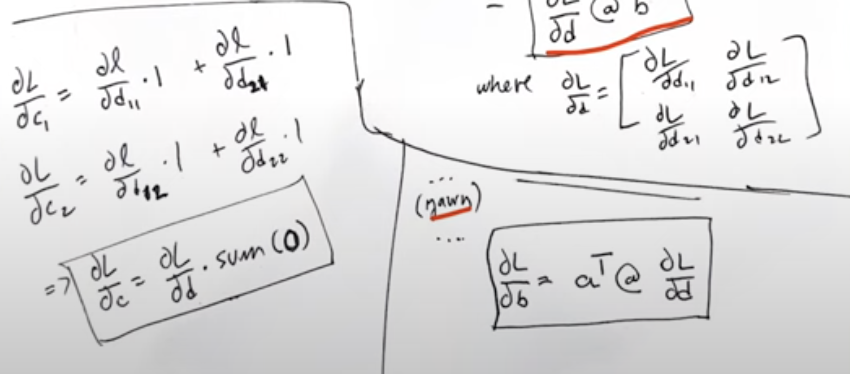 ∂L/∂c₁ = ∂l/∂d₁₁ · 1 + ∂l/∂d₂₁ · 1
∂L/∂c₂ = ∂l/∂d₁₂ · 1 + ∂l/∂d₂₂ · 1
=> ∂L/∂c = ∂L/∂d . sum(0)
= ∂L/∂d @ b
where ∂L/∂d = [ ∂L/∂d₁₁ ∂L/∂d₁₂
∂L/∂d₂₁ ∂L/∂d₂₂ ]
...
(yawn)
....
∂L/∂b = aᵀ @ ∂L/∂d